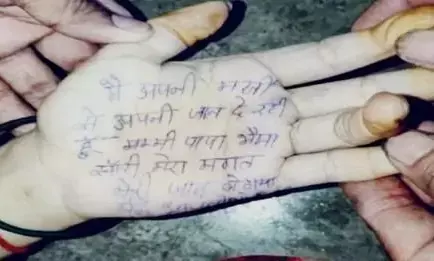 मै अपनी मरजी
से अपनी जान दे रही
हूँ मम्मी पापा भैया
सॉरी मेरा मगत
मेरी जान